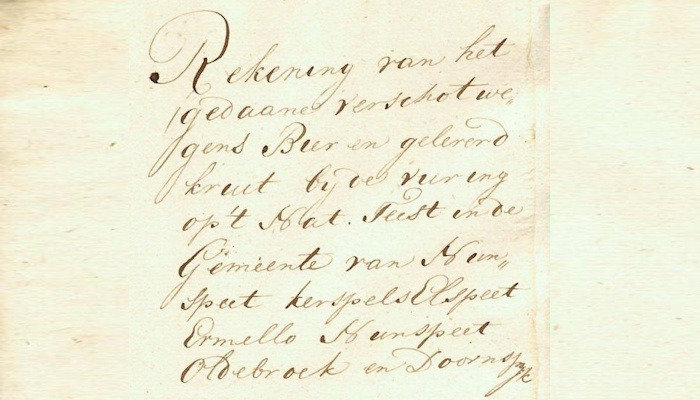 Rekening van het
gedaane verschot we„
gens Bier en geleverd
kruit bij de vuring
op't Nat. Feest in de
Gemeente van Nun„
speet kerspels Elspeet
Ermello Nunspeet
Oldebroek en Doornspijk